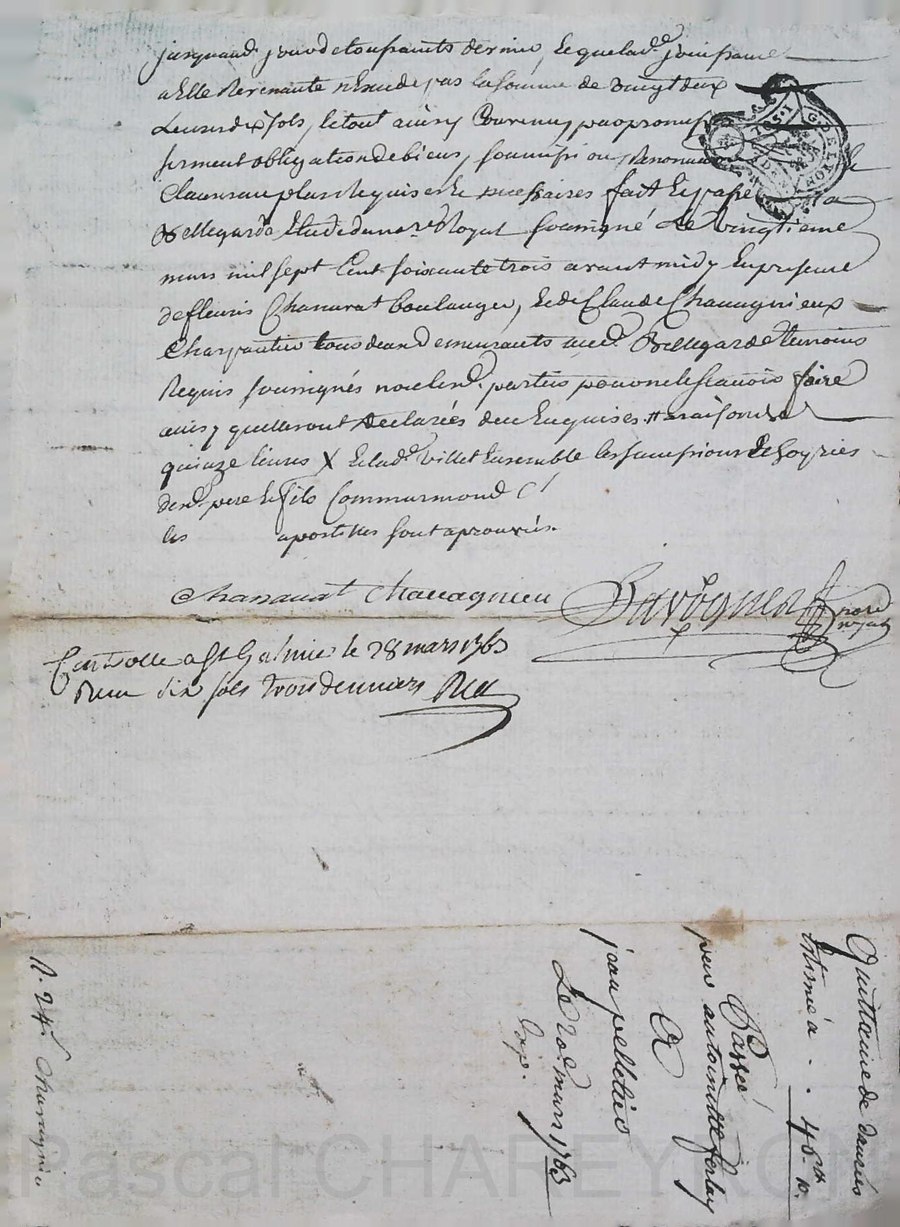 jusquaud. jour de toussaints dernier, Lequelad.e jouissance
a Elle Revenante n'Excede pas la somme de vingt deux
Livres dix sols, le tout ainsy Convenu, par promesse
serment obligation de biens, soumission, Renon
Clauses au plus Requises et necessaires fait et passé
Bellegarde Etude du no.re Royal soussigné Le vingtieme
mars mil sept Cent soixante trois avant midy En presence
de fleuris Chanavat boulanger, et de Claude Chavagnieux
Charpantier tous deux demeurants aud. Bellegarde temoins
Requis soussignés non lesd. parties pour ne le scavoir faire
ainsy quelles ont declarées de ce Enquises # a raison de
quinze livres X Et lad. Villet Ensemble les
desd. pere et fils
les apostilles sont aprouvés.
Chanavat Chavagnieu
no.re royal
Controllé a St Galmier le 28 mars 1763
Reçu dix sols trois deniers
Quittance de
Estimé a . . 45 10
Passé
pour antoinette ferlay
A
jean pelletier
Le 20 mars 1763
Exp.
N. 24
G. DE LYON
Pascal CHAREYRON